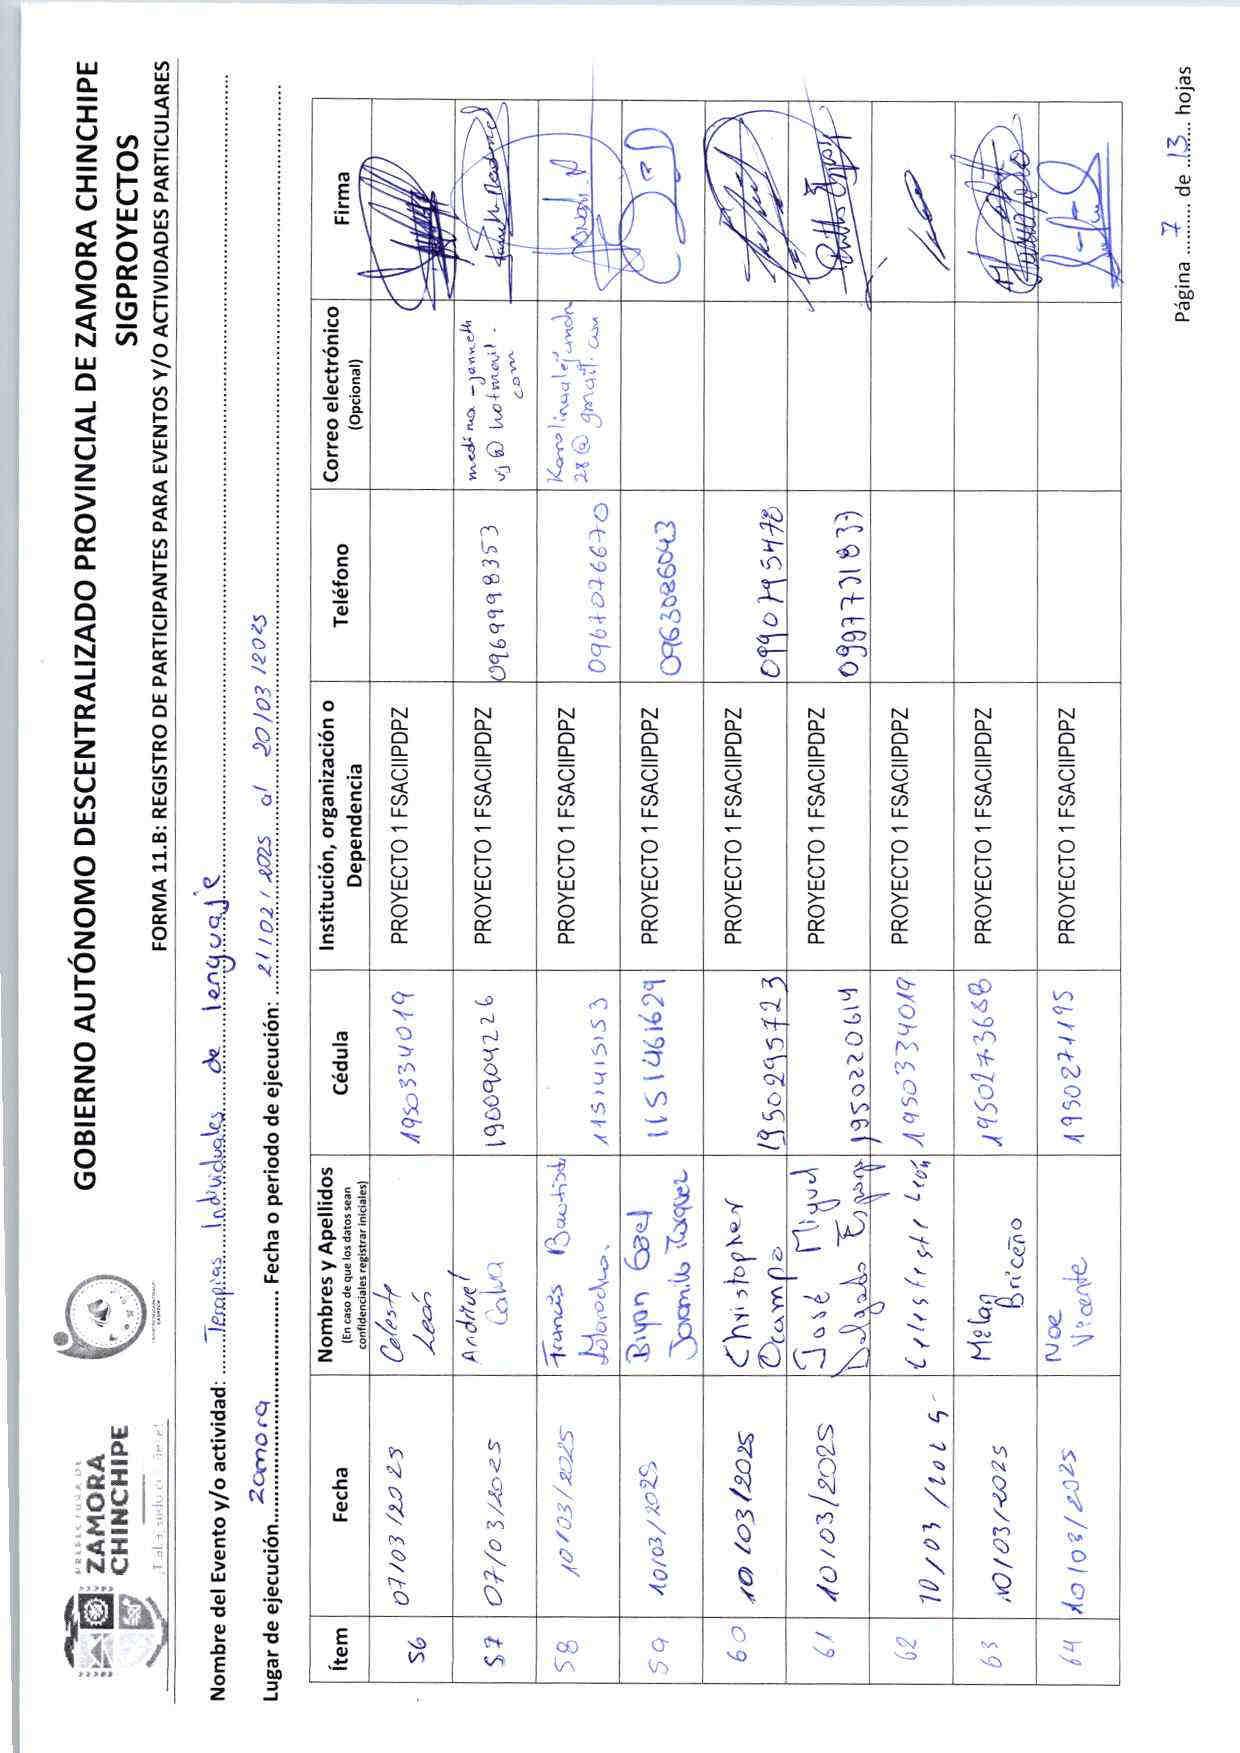 PREFECTURA DE
ZAMORA
CHINCHIPE
GOBIERNO AUTÓNOMO DESCENTRALIZADO PROVINCIAL DE ZAMORA CHINCHIPE
SIGPROYECTOS
FORMA 11.B: REGISTRO DE PARTICIPANTES PARA EVENTOS Y/O ACTIVIDADES PARTICULARES
Nombre del Evento y/o actividad: Terapias Individuales de lenguaje
Lugar de ejecución Zamora Fecha o periodo de ejecución: 21/02/2025 al 20/03/2025
Ítem Fecha Nombres y Apellidos (En caso de que los datos sean confidenciales registrar iniciales) Cédula Institución, organización o Dependencia Teléfono Correo electrónico (Opcional) Firma
56 07/03/2025 Celeste León 1950334019 PROYECTO 1 FSACIIPDPZ
57 07/03/2025 Calva 1900904226 PROYECTO 1 FSACIIPDPZ 0969998353 @hotmail.com
58 10/03/2025 Francis Bautista 1151415153 PROYECTO 1 FSACIIPDPZ 0967076670 28@gmail.com
59 10/03/2025 Gael Jaramillo 1151461629 PROYECTO 1 FSACIIPDPZ 0963086043
60 10/03/2025 Christopher Ocampo 1950295723 PROYECTO 1 FSACIIPDPZ 0990795478
61 10/03/2025 José Miguel Delgado 1950220614 PROYECTO 1 FSACIIPDPZ 0997731837
62 10/03/2025 León 1950334019 PROYECTO 1 FSACIIPDPZ
63 10/03/2025 Milan Briceño 1950273688 PROYECTO 1 FSACIIPDPZ
64 10/03/2025 Noe Vicente 1950271195 PROYECTO 1 FSACIIPDPZ
Página 7 de 13 hojas